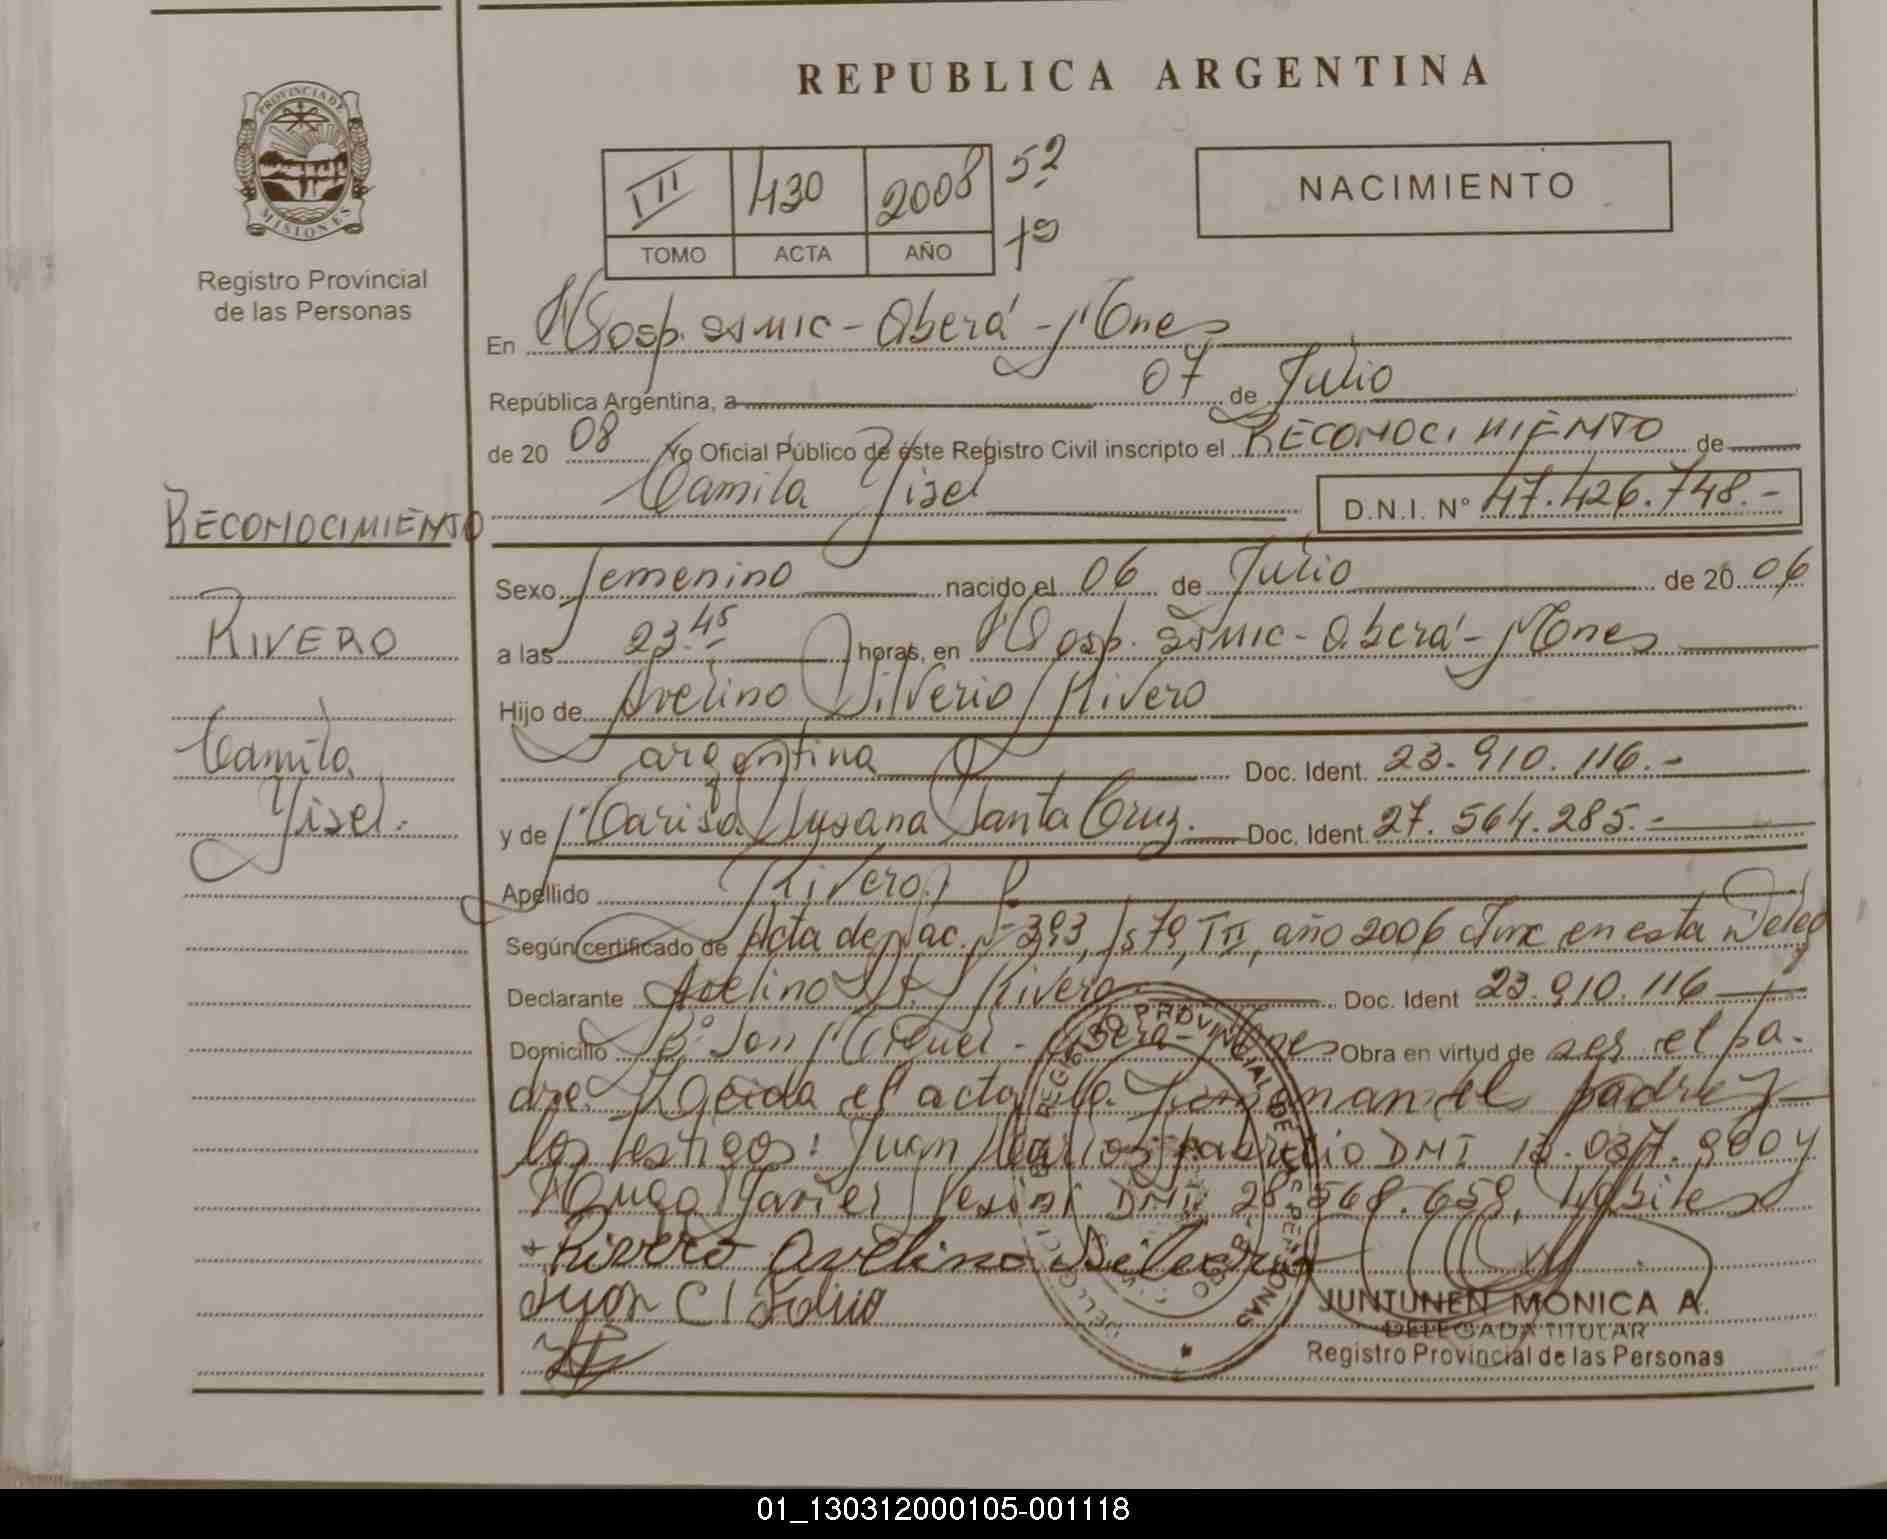 REPUBLICA ARGENTINA
PROVINCIA DE
MISIONES
Registro Provincial
de las Personas
III 430 2008 52
TOMO ACTA AÑO
NACIMIENTO
En Hosp. SAMIC - Oberá - Mnes
República Argentina, a 07 de Julio
de 20 08 Yo Oficial Público de este Registro Civil inscripto el RECONOCIMIENTO de
Camila Yisel D.N.I. N° 47.426.748.-
RECONOCIMIENTO
Sexo femenino nacido el 06 de Julio de 20 06
RIVERO
a las 23.45 horas, en Hosp. SAMIC - Oberá - Mnes
Hijo de Avelino Silverio Rivero
Camila
argentina Doc. Ident. 23.910.116.-
Yisel.
y de Marisa Susana Santa Cruz. Doc. Ident. 27.564.285.-
Apellido Rivero
Según certificado de Acta de Nac. N° 393, fs 79, TII, año 2006 en esta Deleg
Declarante Avelino S. Rivero Doc. Ident 23.910.116
Domicilio B° San Miguel - Oberá - Mnes Obra en virtud de ser el pa-
dre. Leida el acta la firman el padre y
los testigos: Juan Carlos Fabricio DNI 13.037.990 y
Hugo Javier DNI 28.568.659, hábiles
Rivero Avelino Silverio
Juan C
JUNTUNEN MONICA A.
DELEGADA TITULAR
Registro Provincial de las Personas
REGISTRO PROVINCIAL DE LAS PERSONAS
01_130312000105-001118